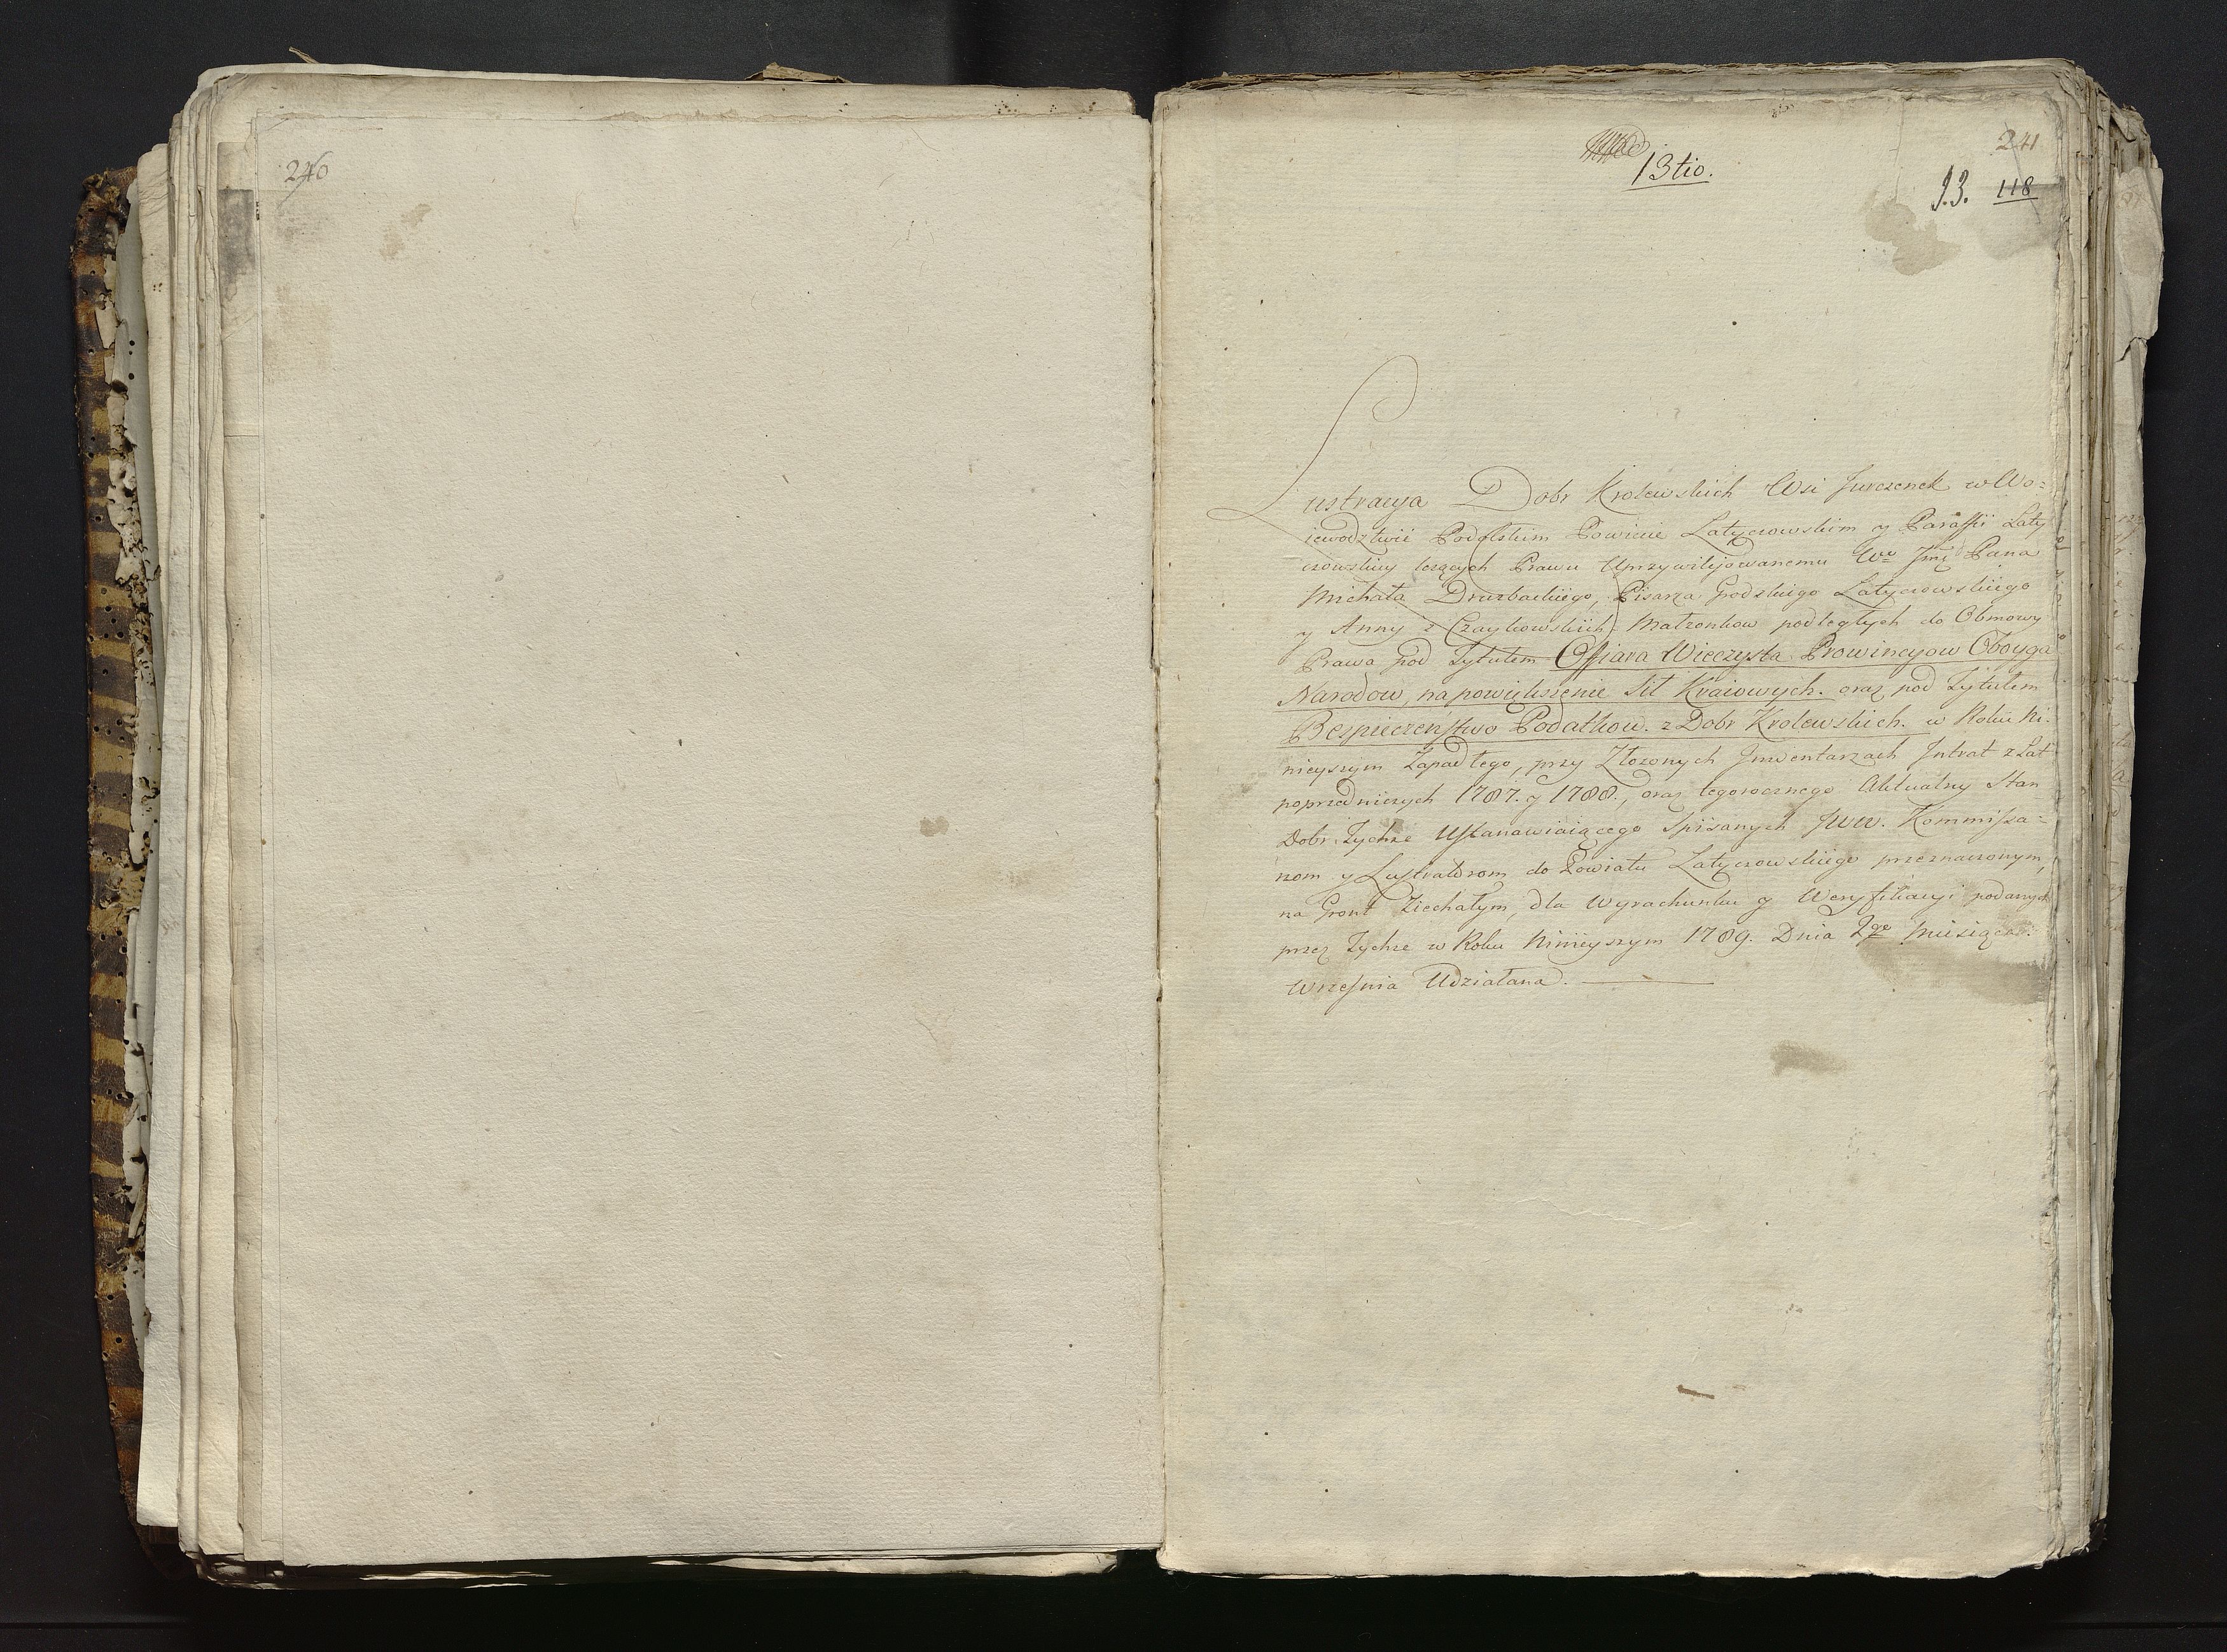 240
241
13tio.
13. 118
Lustracya Dobr Krolewskich Wsi Jurczenek w Wo=
iewodztwie Podolskim Powiecie Latyczowskim y Paraffii Laty
czowskiey leżących Prawu Uprzywilejowanemu We Jmć Pana
Michała Druzbackiego, Pisarza Grodzkiego Latyczowskiego
y Anny z Czaykowskich Małzonkow podległych do Obmowy
Prawa pod Tytułem Offiara Wieczysta Prowincyow Oboyga
Narodow, na powiększenie Sił Kraiowych. oraz pod Tytułem
Bespieczeństwo Podatkow. z Dobr Krolewskich. w Roku Ni-
nieyszym Zapadłego, przy Złozonych Jnwentarzach Jntrat z Lat
poprzedniczych 1787. y 1788., oraz tegorocznego Aktualny Stan
Dobr Tychze Ustanawiaiącego Spisanych JWW. Kommissa=
rzom y Lustratorom do Powiatu Latyczowskiego przeznaczonym,
na Gront Ziechałym, dla Wyrachunku y Weryfikacyi podanych
przez Tychze w Roku Ninieyszym 1789. Dnia 2go Miesiąca
Września Udziałana.